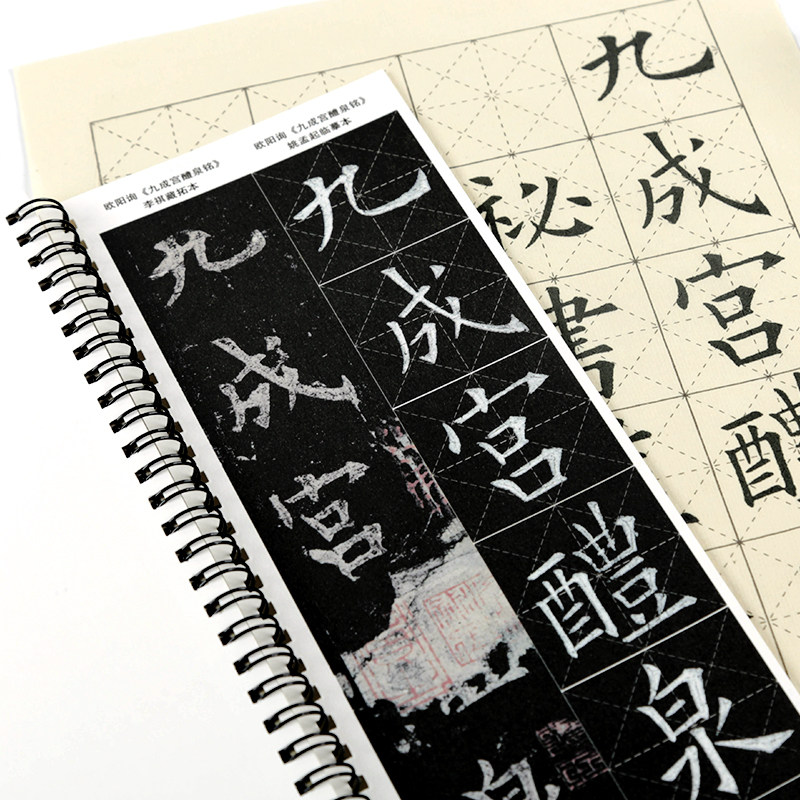 欧阳询《九成宫醴泉铭》
李祺藏拓本
欧阳询《九成宫醴泉铭》
姚孟起临摹本
九成宫
九成宫醴泉
九成宫醴
祕書